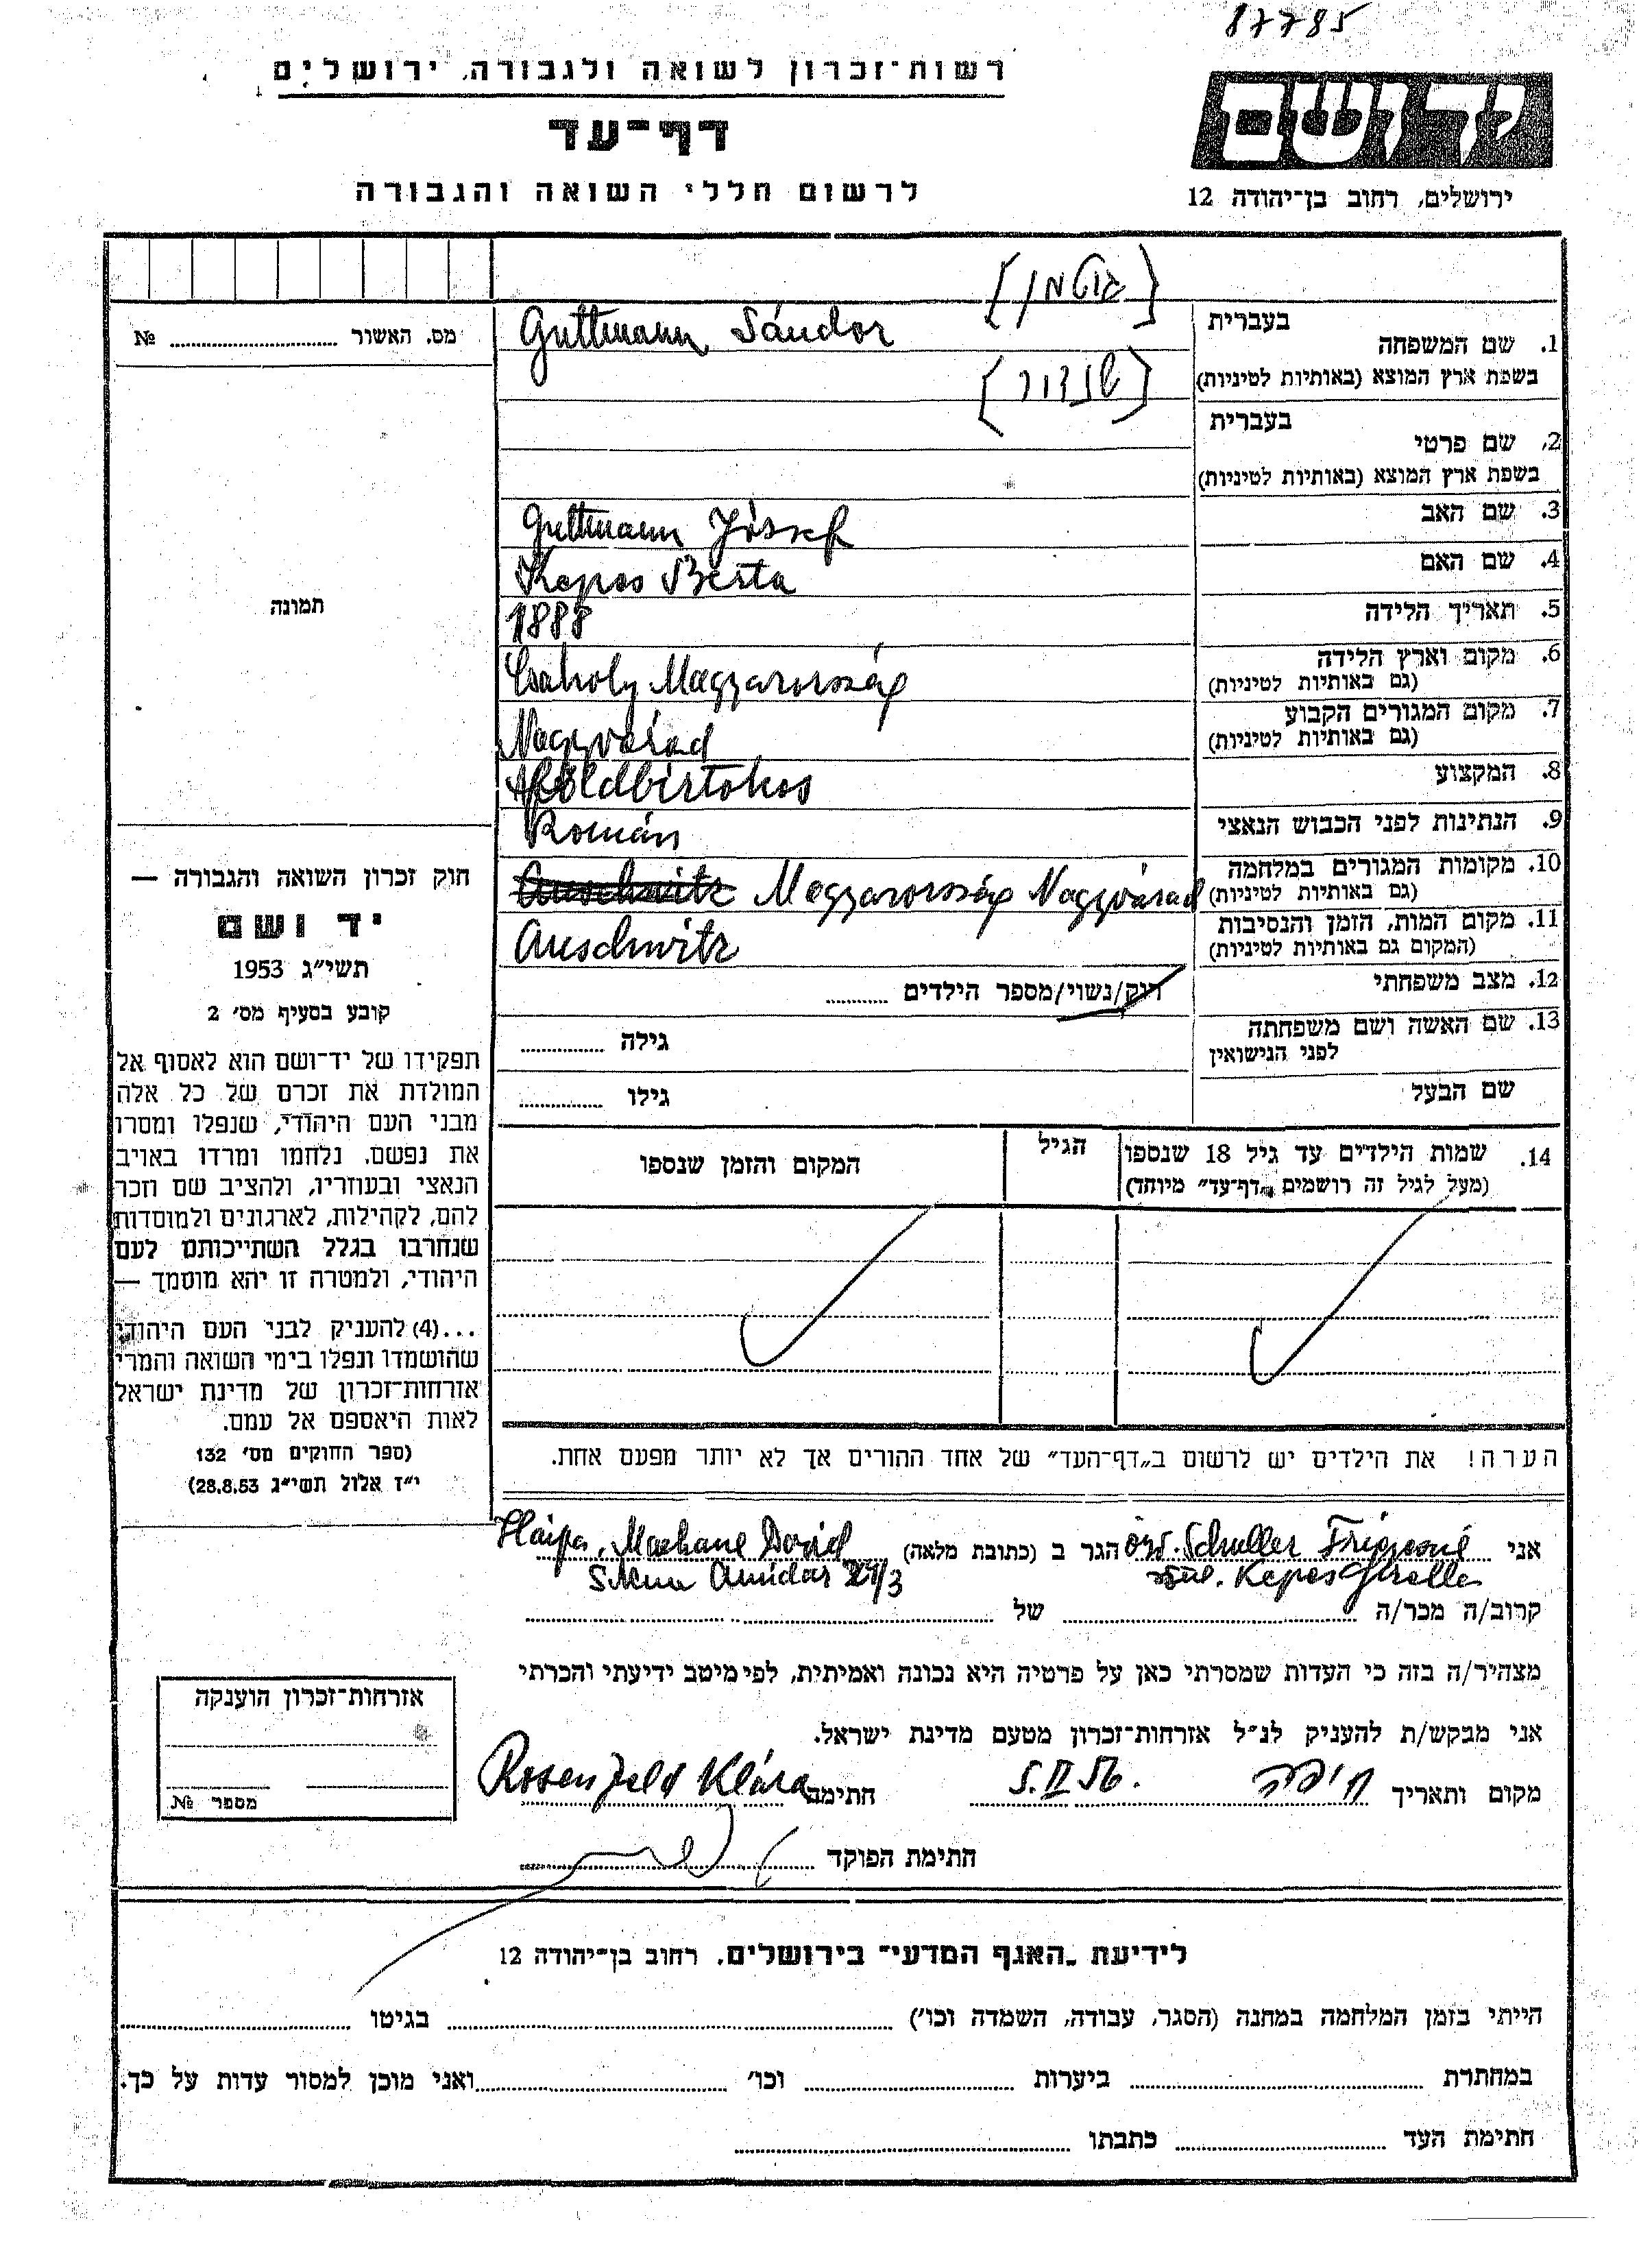 87785
רשות־זכרון לשואה ולגבורה, ירושלים
דף־עד
לרשום חללי השואה והגבורה
יד ושם
ירושלים, רחוב בן־יהודה 12
[גוטמן]
בעברית
1. שם המשפחה
בשפת ארץ המוצא (באותיות לטיניות)
Guttmann Sándor
[שנדור]
מס. האשור № 
בעברית
2. שם פרטי
בשפת ארץ המוצא (באותיות לטיניות)
3. שם האב
Guttmann József
4. שם האם
Kepes Berta
5. תאריך הלידה
1888
6. מקום וארץ הלידה
(גם באותיות לטיניות)
Csaholy Magyarország
7. מקום המגורים הקבוע
(גם באותיות לטיניות)
Nagyvárad
8. המקצוע
földbirtokos
9. הנתינות לפני הכבוש הנאצי
Román
10. מקומות המגורים במלחמה
(גם באותיות לטיניות)
Auschwitz Magyarország Nagyvárad
11. מקום המות, הזמן והנסיבות
(המקום גם באותיות לטיניות)
Auschwitz
12. מצב משפחתי
רווק/נשוי/מספר הילדים
13. שם האשה ושם משפחתה
לפני הנישואין
גילה
שם הבעל
גילו
תמונה
חוק זכרון השואה והגבורה —
יד ושם
תשי״ג 1953
קובע בסעיף מס׳ 2
תפקידו של יד־ושם הוא לאסוף אל
המולדת את זכרם של כל אלה
מבני העם היהודי, שנפלו ומסרו
את נפשם, נלחמו ומרדו באויב
הנאצי ובעוזריו, ולהציב שם וזכר
להם, לקהילות, לארגונים ולמוסדות
שנחרבו בגלל השתייכותם לעם
היהודי, ולמטרה זו יהא מוסמך —
...(4) להעניק לבני העם היהודי
שהושמדו ונפלו בימי השואה והמרי
אזרחות־זכרון של מדינת ישראל
לאות היאספם אל עמם.
(ספר החוקים מס׳ 132
י״ז אלול תשי״ג 28.8.53)
14. שמות הילדים עד גיל 18 שנספו
(מעל לגיל זה רושמים „דף־עד״ מיוחד)
הגיל
המקום והזמן שנספו
הערה! את הילדים יש לרשום ב„דף־העד״ של אחד ההורים אך לא יותר מפעם אחת.
אני Schuller Frigyesné הגר ב (כתובת מלאה) Haifa, Machane David
Kepes Amidar
קרוב/ה מכר/ה של
מצהיר/ה בזה כי העדות שמסרתי כאן על פרטיה היא נכונה ואמיתית, לפי מיטב ידיעתי והכרתי
אני מבקש/ת להעניק לנ״ל אזרחות־זכרון מטעם מדינת ישראל.
מקום ותאריך חיפה 5.II.56. חתימה Rosenfeld Klára
חתימת הפוקד
אזרחות־זכרון הוענקה
מספר №
לידיעת „האגף המדעי״ בירושלים, רחוב בן־יהודה 12
הייתי בזמן המלחמה במחנה (הסגר, עבודה, השמדה וכו׳) בגיטו
במחתרת ביערות וכו׳ ואני מוכן למסור עדות על כך.
חתימת העד כתבתו